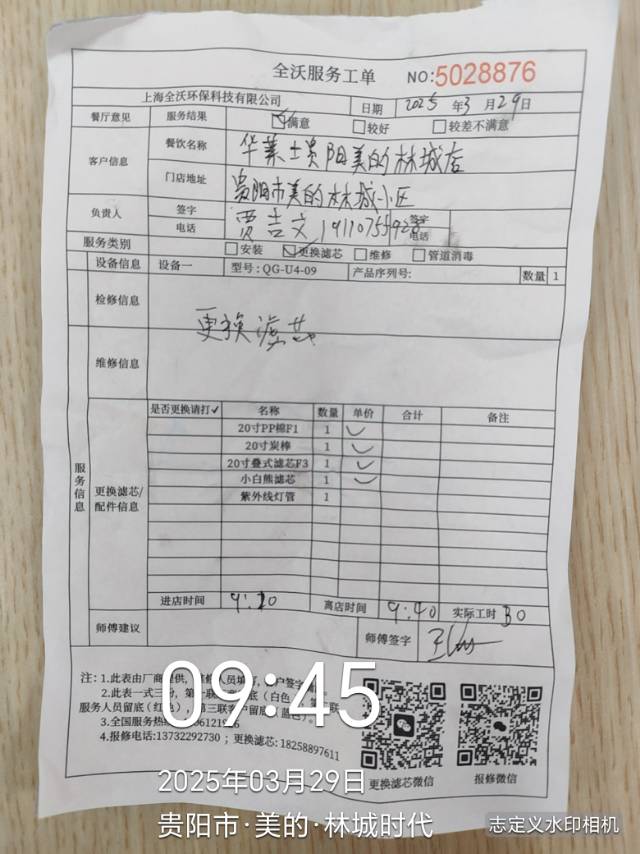 全沃服务工单 NO:5028876
上海全沃环保科技有限公司 日期 2025 年 3 月 29 日
餐厅意见 服务结果 ☑满意 □较好 □较差不满意
客户信息 餐饮名称 华莱士贵阳美的林城店
门店地址 贵阳市美的林城小区
负责人 签字 贾吉文 签字
电话 19110755928 电话
服务类别 □安装 ☑更换滤芯 □维修 □管道消毒
设备信息 设备一 型号:QG-U4-09 产品序列号: 数量 1
检修信息 更换滤芯
维修信息
服务信息
是否更换请打✓ 名称 数量 单价 合计 备注
20寸PP棉F1 1 ✓
20寸炭棒 1 ✓
20寸叠式滤芯F3 1 ✓
小白熊滤芯 1 ✓
紫外线灯管 1
更换滤芯/
配件信息
进店时间 9:10 离店时间 9:40 实际工时 30
师傅建议 师傅签字
注: 1.此表由厂商提供,
2.此表一式三份, 第一联 底(白色
服务人员留底(红色), 第三联客户留底(蓝色)
3.全国服务热
4.报修电话:13732292730 ; 更换滤芯: 18258897611
更换滤芯微信 报修微信
09:45
2025年03月29日
贵阳市·美的·林城时代
志定义水印相机